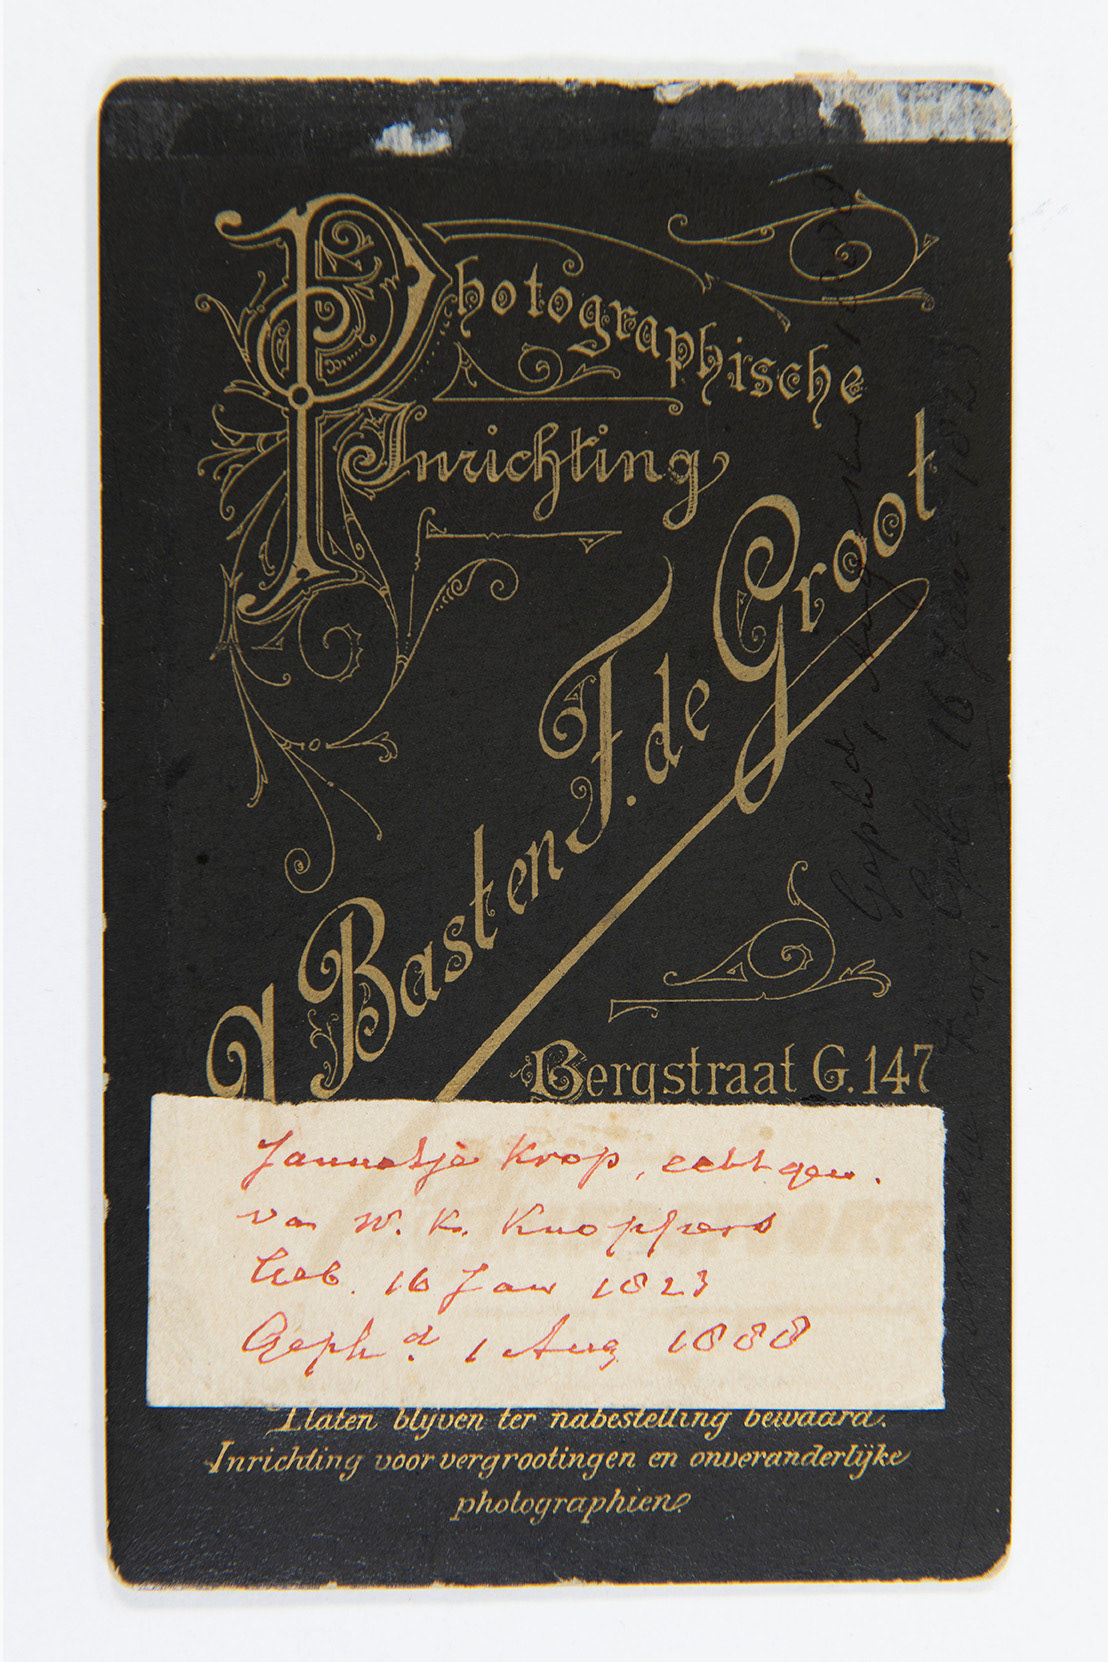 Photographische
Inrichting
F. de Groot
Basten
Bergstraat G. 147
Jannetje Krop, echtgen.
van W. K. Knoppers
Geb. 16 Jan 1823
Geph.d 1 Aug 1888
Platen blijven ter nabestelling bewaard.
Inrichting voor vergrootingen en onveranderlijke
photographien.
Gephd 1 Augustus
Geb 16 Jan 1823
Krop